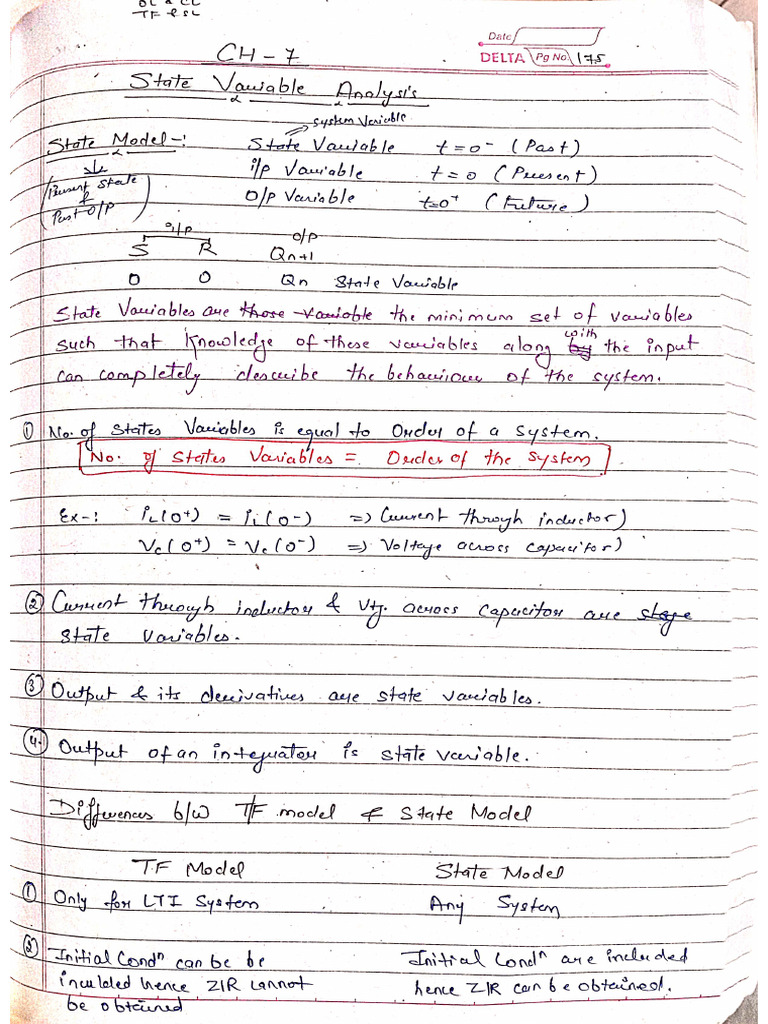 OL & CL
TF & SL
Date
DELTA Pg No. 175
CH - 7
State Variable Analysis
system Variable
State Model -: State Variable t = 0⁻ (Past)
i/p Variable t = 0 (Present)
(Present State & Past O/P) O/P Variable t=0⁺ (Future)
i/p o/p
S R Qn+1
0 0 Qn State Variable
State Variables are those variable the minimum set of variables
such that knowledge of these variables along by with the input
can completely describe the behaviour of the system.
① No. of States Variables is equal to Order of a system.
No. of States Variables = Order of the system
Ex-: iL(0⁺) = iL(0⁻) => Current through inductor)
Vc(0⁺) = Vc(0⁻) => Voltage across capacitor)
② Current through inductor & Vtg. across capacitor are stage
state variables.
③ Output & its derivatives are state variables.
④. Output of an integrator is state variable.
Differences b/w T/F model & State Model
T.F Model State Model
① Only for LTI System Any System
② Initial Condⁿ can be be Initial Condⁿ are included
inculded hence ZIR cannot hence ZIR can be obtained.
be obtained